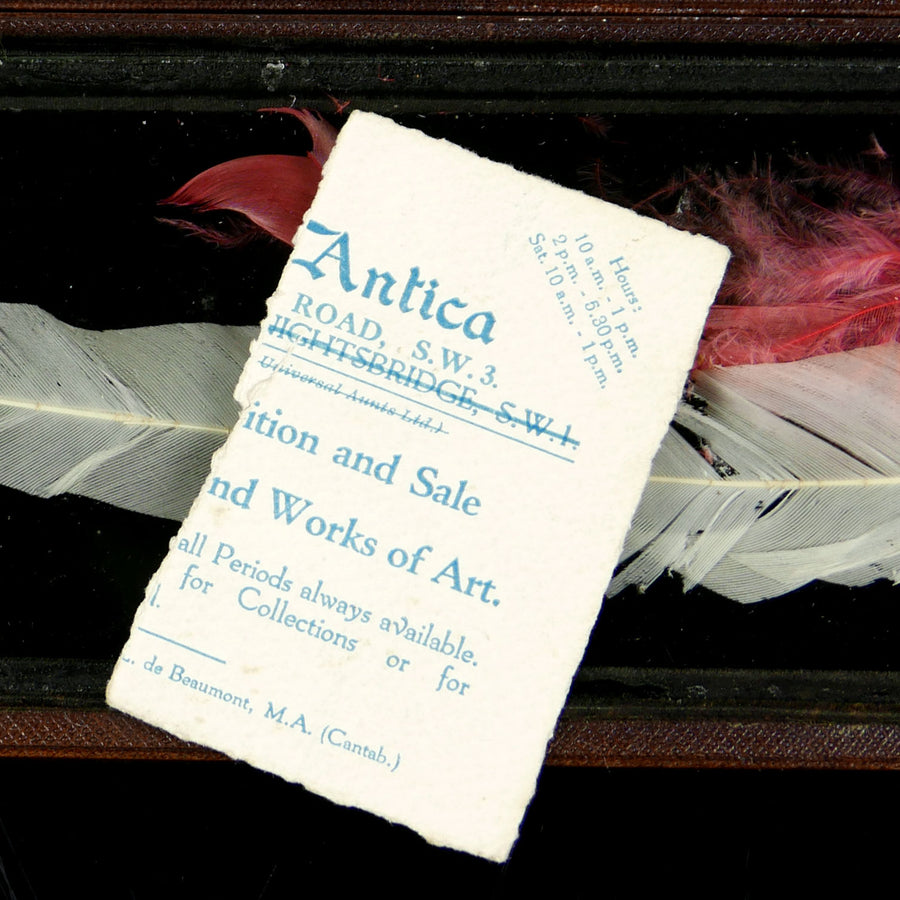 Hours:
10 a.m. - 1 p.m.
2 p.m. - 5.30 p.m.
Sat. 10 a.m. - 1 p.m.
Antica
ROAD, S.W.3.
NIGHTSBRIDGE, S.W.1.
Universal Aunts Ltd.)
ition and Sale
nd Works of Art.
all Periods always available.
for Collections or for
l.
. de Beaumont, M.A. (Cantab.)